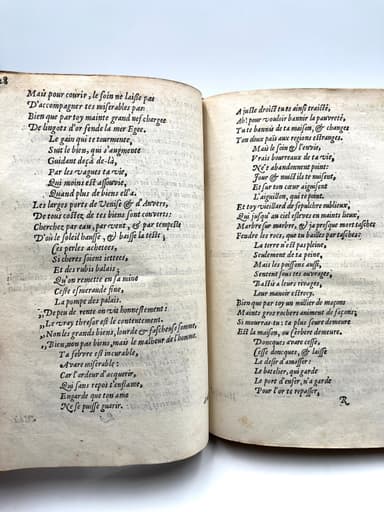 Mais pour courir, le soin ne laisse pas
D'accompagner tes miserables pas:
Bien que par toy mainte grand nef chargee
De lingots d'or fende la mer Egee.
Le gain qui te tourmente,
Suit le bien, qui s'augmente
Guidant deçà de-là,
Par les vagues ta vie,
Qui moins est assouvie,
Quand plus de biens ell'a.
Les larges ports de Venise & d'Anvers,
De tous costez de tes biens sont couverts:
Cherchez par eau, par vent, & par tempeste
D'où le soleil hausse, & baisse la teste;
Ces perles achetees,
Si cheres soient iettees,
Et des rubis balais;
Qu'on remette en sa mine
Ceste esmeraude fine,
La pompe des palais.
„De peu de rente on vit honnestement:
„Le vray thresor est le contentement.
„Non les grands biens, lourde & fascheuse somme,
„Bien, non pas bien, mais le malheur de l'homme.
Ta fiebvre est incurable,
Avare miserable:
Car l'ardeur d'acquerir,
Qui sans repos t'enflame,
Engarde que ton ame
Ne se puisse guarir.
A juste droict tu és ainsi traicté,
Ah! pour vouloir bannir la pauvreté,
Tu te bannis de ta maison, & changes
Ton doux païs aux regions estranges.
Mais le soin & l'envie,
Vrais bourreaux de ta vie,
Ne t'abandonnent point:
Jour & nuict ils te nuisent,
Et sur ton cœur aiguisent
L'aiguillon, qui te point.
Et toy vieillard de sepulchre oublieux,
Qui jusqu'au ciel esleves en maints lieux,
Marbre sur marbre, & ja presque mort tasches
Fendre les rocs, que tu bailles par tasches:
La terre n'est pas pleine,
Seulement de ta peine,
Mais les poissons aussi,
Sentent sous tes ouvrages,
Bastis à leurs rivages,
Leur manoir estrecy.
Bien que par toy un millier de maçons
Mainte gros rochers animent de façons:
Si mourras-tu: ta plus seure demeure
Est la maison, ou Cerbere demeure.
Doncques avare cesse,
Cesse doncques, & laisse
Le desir d'amasser:
Le batelier, qui garde
Le port d'enfer, n'a garde
Pour l'or te repasser,
R